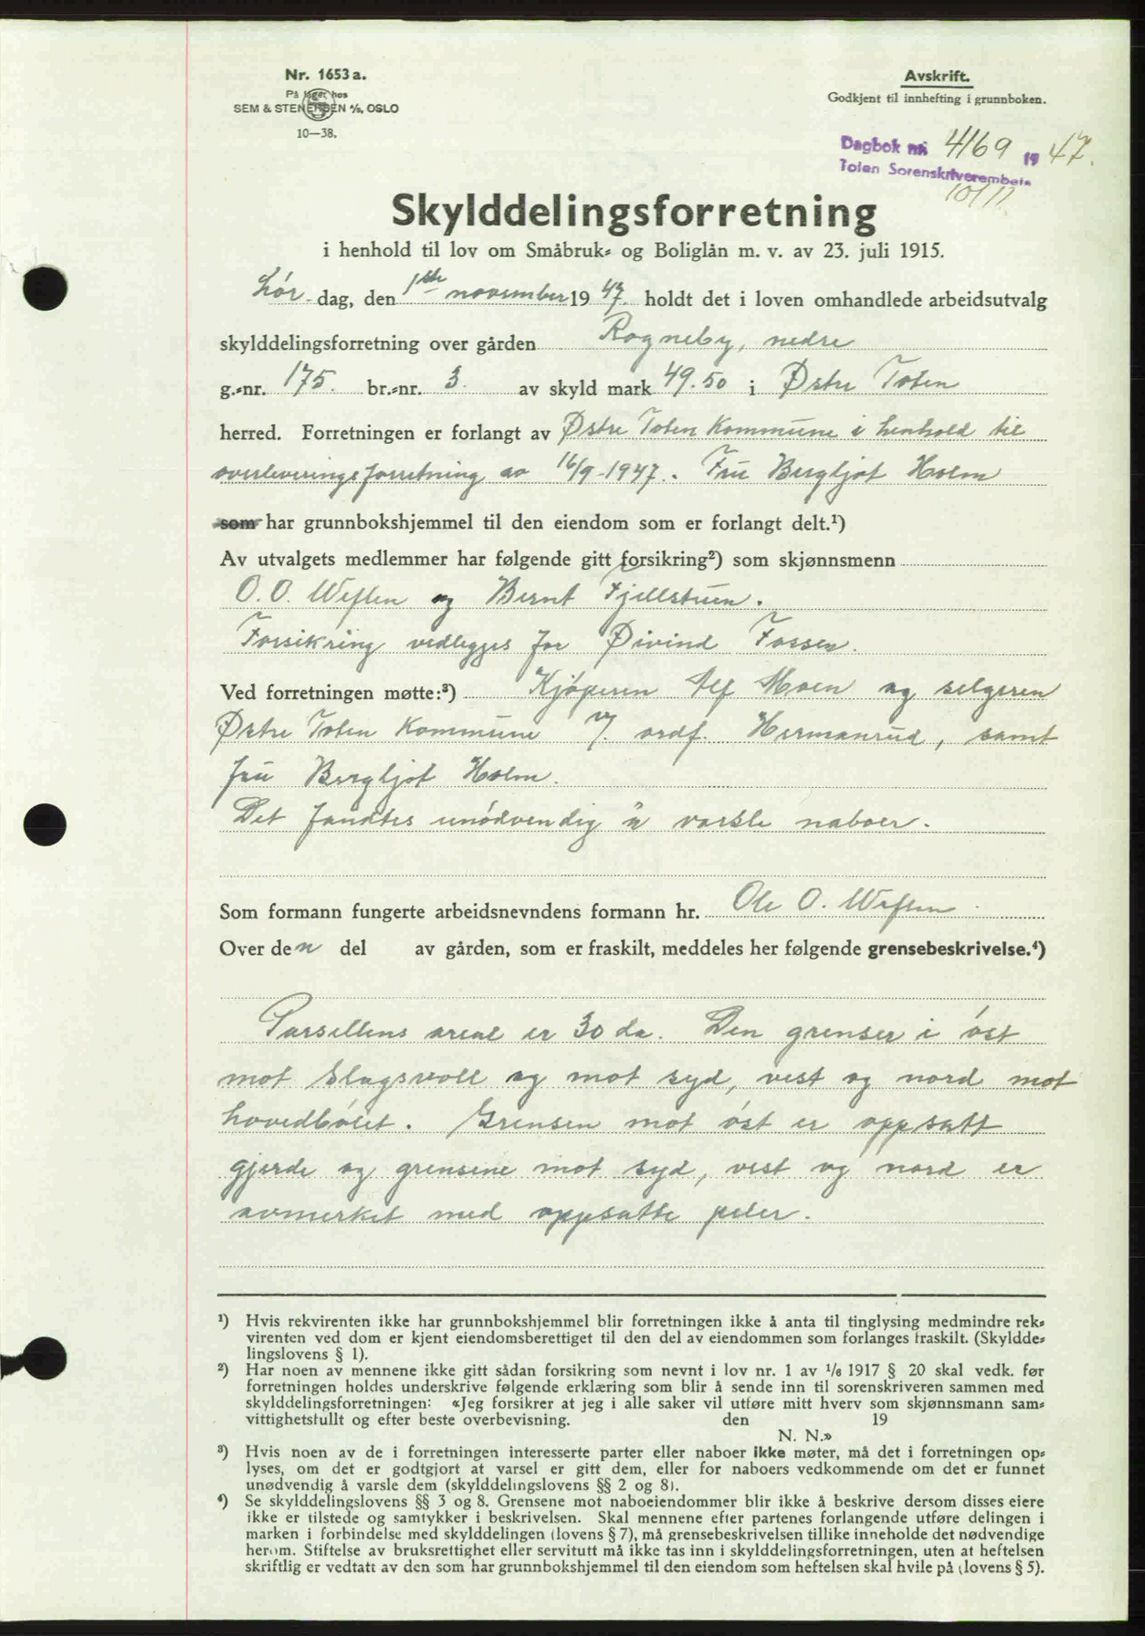 Nr. 1653 a.
På lager hos
SEM & STENERSEN A/S, OSLO
10—38.
Avskrift.
Godkjent til innhefting i grunnboken.
Dagbok nr. 4169 1947.
Toten Sorenskriverembete
10/11
Skylddelingsforretning
i henhold til lov om Småbruk- og Boliglån m. v. av 23. juli 1915.
Lørdag, den 1ste november 1947. holdt det i loven omhandlede arbeidsutvalg
skylddelingsforretning over gården Rogneby, nedre
g.-nr. 175. br.-nr. 3. av skyld mark 49.50 i Østre Toten
herred. Forretningen er forlangt av Østre Toten Kommune i henhold til
overleveringsforretning av 16/9-1947. Fru Bergljot Holm
som har grunnbokshjemmel til den eiendom som er forlangt delt.¹)
Av utvalgets medlemmer har følgende gitt forsikring²) som skjønnsmenn
O. O. Weflen og Bernt Fjellstuen.
Forsikring vedlegges for Øivind Fossen.
Ved forretningen møtte:³) Kjøperen Alf Moen og selgeren
Østre Toten Kommune v/ ordf. Hermanrud, samt
fru Bergljot Holm.
Det fandtes unødvendig å varsle naboer.
Som formann fungerte arbeidsnevndens formann hr. Ole O. Weflen
Over den del av gården, som er fraskilt, meddeles her følgende grensebeskrivelse.⁴)
Parsellens areal er 30 da. Den grenser i øst
mot Slagsvoll og mot syd, vest og nord mot
hovedbølet. Grensen mot øst er oppsatt
gjerde og grensene mot syd, vest og nord er
avmerket med oppsatte peler.
¹) Hvis rekvirenten ikke har grunnbokshjemmel blir forretningen ikke å anta til tinglysing medmindre rek-
virenten ved dom er kjent eiendomsberettiget til den del av eiendommen som forlanges fraskilt. (Skyldde-
lingslovens § 1).
²) Har noen av mennene ikke gitt sådan forsikring som nevnt i lov nr. 1 av 1/6 1917 § 20 skal vedk. før
forretningen holdes underskrive følgende erklæring som blir å sende inn til sorenskriveren sammen med
skylddelingsforretningen: «Jeg forsikrer at jeg i alle saker vil utføre mitt hverv som skjønnsmann sam-
vittighetsfullt og efter beste overbevisning. den 19
N. N.»
³) Hvis noen av de i forretningen interesserte parter eller naboer ikke møter, må det i forretningen op-
lyses, om det er godtgjort at varsel er gitt dem, eller for naboers vedkommende om det er funnet
unødvendig å varsle dem (skylddelingslovens §§ 2 og 8).
⁴) Se skylddelingslovens §§ 3 og 8. Grensene mot naboeiendommer blir ikke å beskrive dersom disses eiere
ikke er tilstede og samtykker i beskrivelsen. Skal mennene efter partenes forlangende utføre delingen i
marken i forbindelse med skylddelingen (lovens § 7), må grensebeskrivelsen tillike inneholde det nødvendige
herom. Stiftelse av bruksrettighet eller servitutt må ikke tas inn i skylddelingsforretningen, uten at heftelsen
skriftlig er vedtatt av den som har grunnbokshjemmel til den eiendom som heftelsen skal hvile på (lovens § 5).